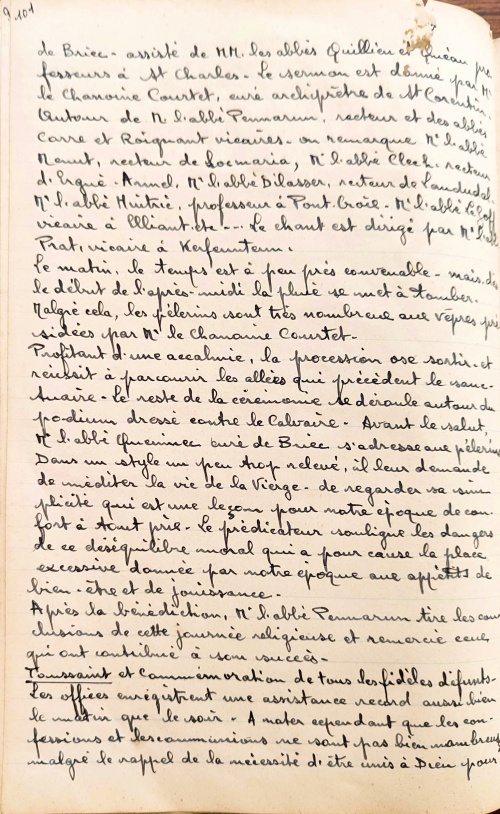 9.101
de Briec - assisté de MM. les abbés Quillien et Quéau pro
fesseurs à St Charles - Le sermon est donné par Mr
le Chanoine Courtet, curé archiprêtre de St Corentin.
Autour de Mr l'abbé Pennarun, recteur et des abbés
Carre et Roignant vicaires - on remarque Mr l'abbé
recteur de Locmaria, Mr l'abbé Cloch, recteur
d'Ergué-Armel, Mr l'abbé Bilasser, recteur de Landudal,
Mr l'abbé professeur à Pont Croix - Mr l'abbé
vicaire à Elliant, etc --- Le chant est dirigé par Mr l'abbé
Prat, vicaire à Kerfeunteun.
Le matin, le temps est à peu près convenable - mais, dès
le début de l'après-midi la pluie se met à tomber.
Malgré cela, les pèlerins sont très nombreux aux vêpres pré
sidées par Mr le Chanoine Courtet -
Profitant d'une accalmie, la procession ose sortir - et
réussit à parcourir les allées qui précèdent le sanc-
tuaire - Le reste de la cérémonie se déroule autour du
podium dressé contre le Calvaire - Avant le salut,
Mr l'abbé Queinnec curé de Briec s'adresse aux pèlerins
Dans un style un peu trop relevé, il leur demande
de méditer la vie de la Vierge - de regarder sa sim
plicité qui est une leçon pour notre époque de con-
fort à tout prix - Le prédicateur souligne les dangers
de ce déséquilibre moral qui a pour cause la place
excessive donnée par notre époque aux appétits de
bien-être et de jouissance -
Après la bénédiction, Mr l'abbé Pennarun tire les con
clusions de cette journée religieuse et remercie ceux
qui ont contribué à son succès -
Toussaint et Commémoration de tous les fidèles défunts -
Les offices enregistrent une assistance record aussi bien
le matin que le soir - A noter cependant que les con-
fessions et les communions ne sont pas bien nombreuses
malgré le rappel de la nécessité d'être unis à Dieu pour